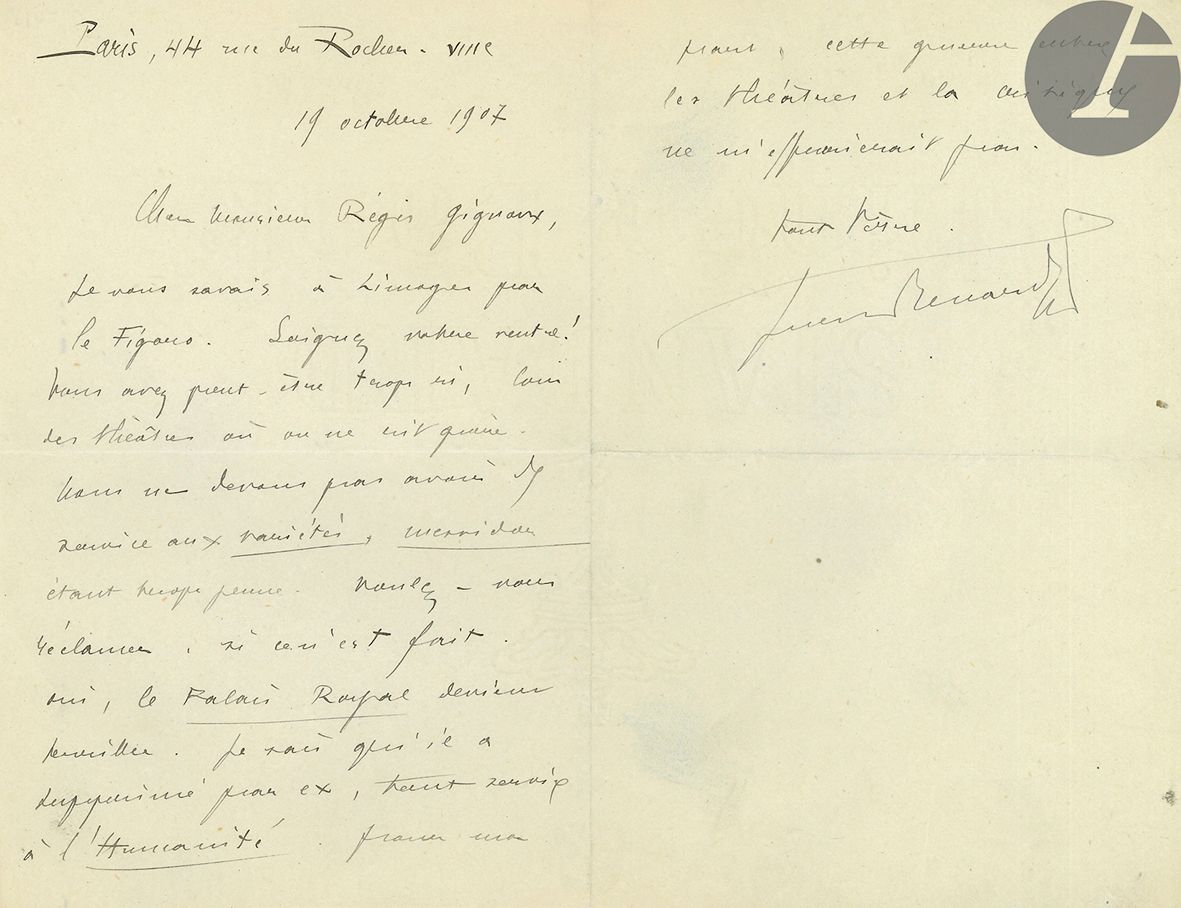 Paris, 44 rue du Rocher. VIIIe
19 octobre 1907
Cher Monsieur Régis Gignoux,
Je vous savais à Limoges pour
le Figaro. Soignez votre rentrée!
Vous avez peut-être trop ri, loin
des théâtres où on ne rit guère.
Nous ne devons pas avoir de
service aux Variétés,
étant trop jeune. Voulez-vous
réclamer, si ce n'est fait.
Oui, le Palais Royal devient
terrible. Je sais qu'il a
supprimé par ex, tout service
à l'Humanité. Pour ma
part, cette guerre entre
les théâtres et la critique
ne m'effraierait pas.
tout vôtre.
Jules Renard